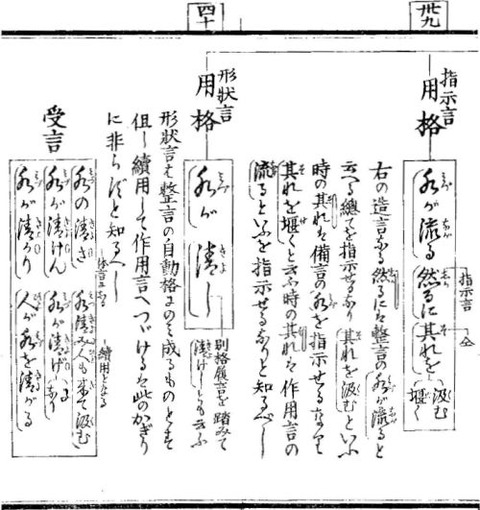 卅九
指示言
用格
水が流る 然るに 其れを 汲む
堰く
指示言
仝
右の造言なる然るには整言の水が流ると
云へる總てを指示せるなり 其れを汲むといふ
時の其れは備言の水を指示せるなり
其れを堰くと云ふ時の其れは作用言の
流るといふを指示せるなりと知るべし
四十
形狀言
用格
水が 淸し
別格履言を踏みて
淸けしとも云ふ
形狀言は整言の自動格にのみ成るものとす
但し續用して作用言へつづけるは此のかぎり
に非らずと知るべし
受言
水の淸き
水が淸けん
水が淸かり
水淸み人も來て汲む
水が淸げ
人が水を淸がる
續用となる